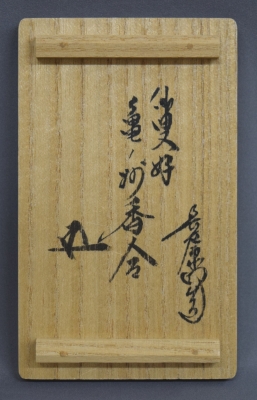 仙叟好
亀ノ香合
長左衛門造